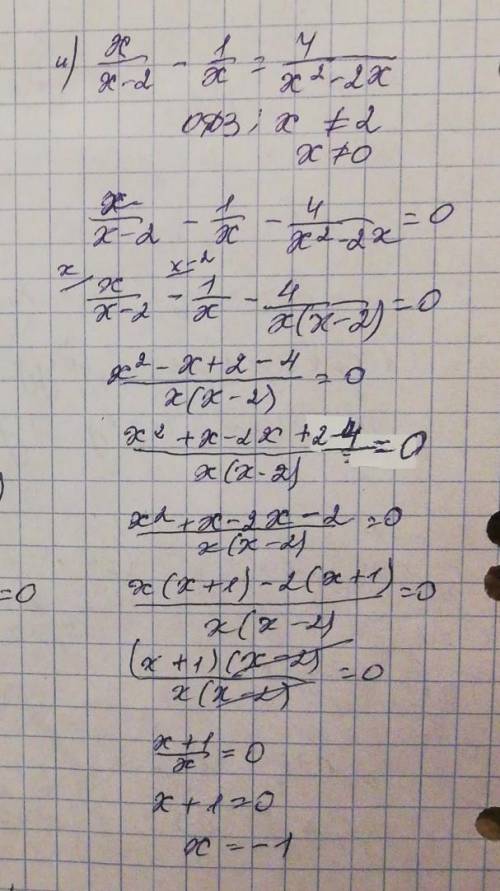 и) x/(x-2) - 1/x = 4/(x²-2x)
ОДЗ: x ≠ 2
x ≠ 0
x/(x-2) - 1/x - 4/(x²-2x) = 0
x/ x/(x-2) - x-2/ 1/x - 4/(x(x-2)) = 0
(x²-x+2-4)/(x(x-2)) = 0
(x²+x-2x+2-4)/(x(x-2)) = 0
)
(x²+x-2x-2)/(x(x-2)) = 0
=0
(x(x+1)-2(x+1))/(x(x-2)) = 0
((x+1)(x-2))/(x(x-2)) = 0
(x+1)/x = 0
x+1=0
x=-1